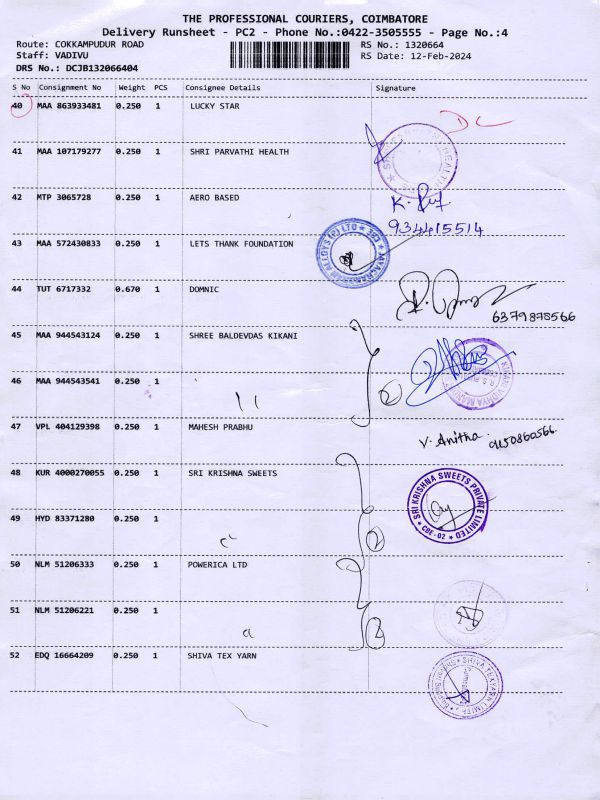 THE PROFESSIONAL COURIERS, COIMBATORE
Delivery Runsheet - PC2 - Phone No.:0422-3505555 - Page No.:4
Route: COKKAMPUDUR ROAD RS No.: 1320664
Staff: VADIVU RS Date: 12-Feb-2024
DRS No.: DCJB132066404
S No Consignment No Weight PCS Consignee Details Signature
40 MAA 863933481 0.250 1 LUCKY STAR
41 MAA 107179277 0.250 1 SHRI PARVATHI HEALTH
42 MTP 3065728 0.250 1 AERO BASED
934415514
43 MAA 572430833 0.250 1 LETS THANK FOUNDATION
44 TUT 6717332 0.670 1 DOMNIC
6379878566
45 MAA 944543124 0.250 1 SHREE BALDEVDAS KIKANI
46 MAA 944543541 0.250 1
47 VPL 404129398 0.250 1 MAHESH PRABHU V. Anitha
9150860566
48 KUR 4000270055 0.250 1 SRI KRISHNA SWEETS
SRI KRISHNA SWEETS PRIVATE LIMITED
CBE - 02
49 HYD 83371280 0.250 1
50 NLM 51206333 0.250 1 POWERICA LTD
51 NLM 51206221 0.250 1
52 EDQ 16664209 0.250 1 SHIVA TEX YARN